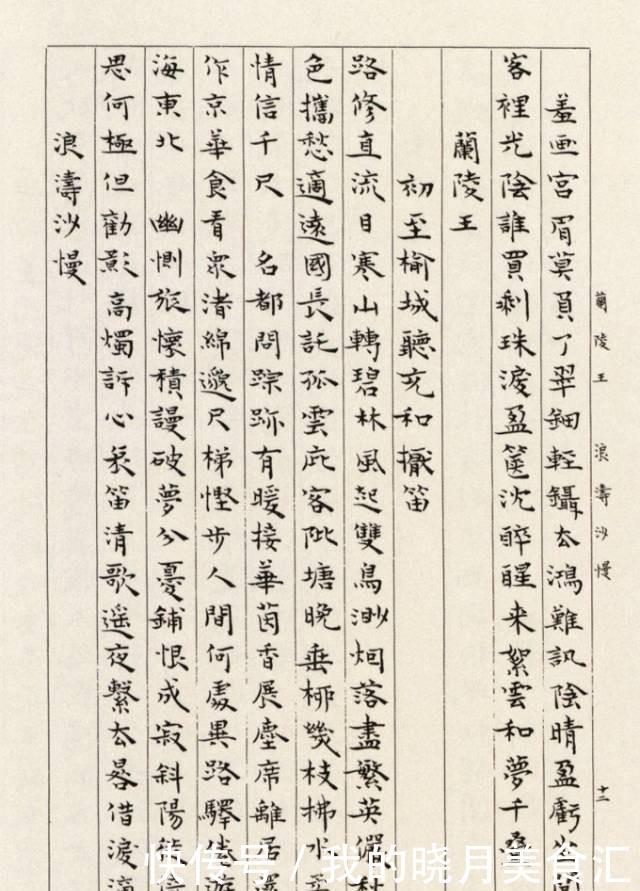 蘭陵王　浪濤沙慢　十二
羞画宮眉莫負了翠鈿輕鑷去鴻難訊陰晴盈虧
客裡光陰誰買剩珠淚盈篋沈醉醒来絮雲和夢千疊
蘭陵王
初至榆城聽充和擫笛
路修直流目寒山轉碧林風起雙鳥渺烟落盡繁英
色攜愁適遠國長託孤雲庇客阰塘晚垂柳幾枝拂水
情信千尺　名都問踪跡有暖接華茵香展塵席離居
作京華食看衆渚綿邈尺梯慳步人間何處異路驛
海東北　幽惻旅懷積謾破夢分憂鋪恨成寂斜陽
思何極但勸影高燭訴心泉笛清歌遥夜繫去晷借淚
浪濤沙慢
快传号 / 我的晓月美食汇